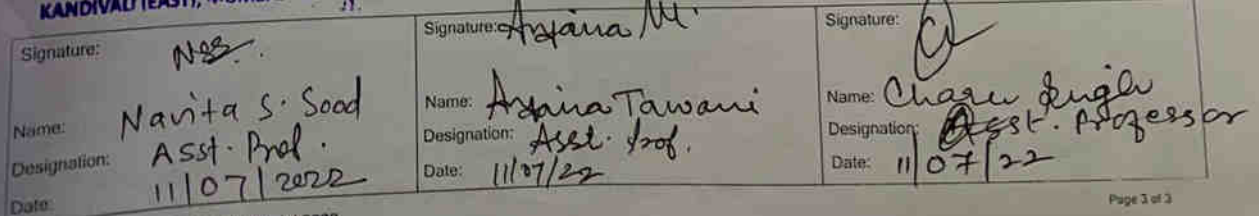 KANDIVALI (EAST),
Signature: Signature: Anjana M. Signature:
Name: Navita S. Sood Name: Anjana Tawani Name: Charu Singh
Designation: Asst. Prof. Designation: Asst. Prof. Designation: Asst. Professor
Date: 11/07/2022 Date: 11/07/22 Date: 11/07/22
Page 3 of 3